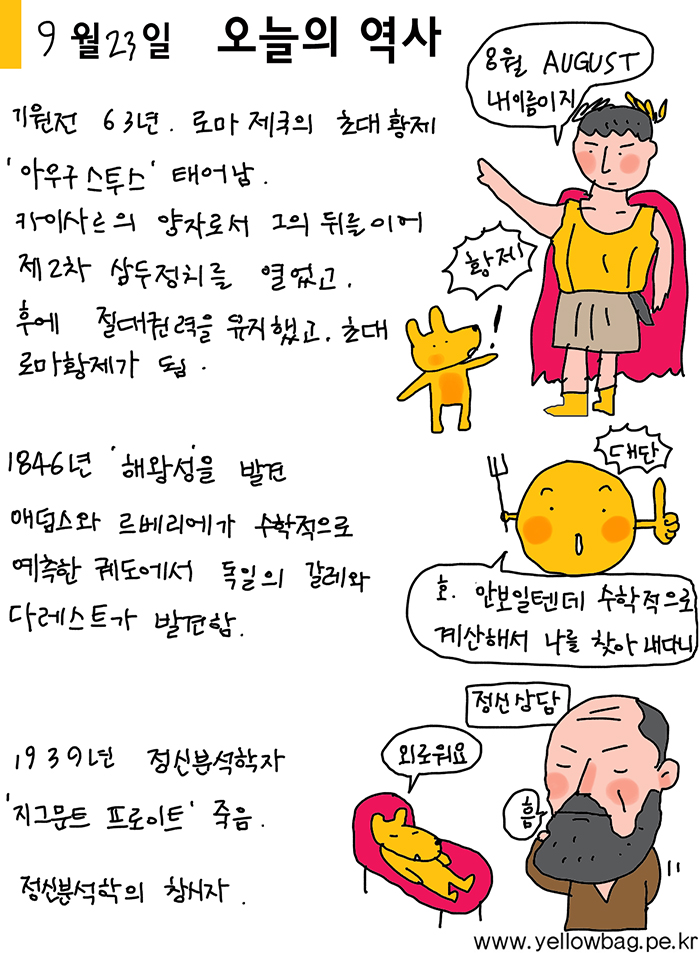 9월23일 오늘의 역사
8월 AUGUST
내이름이지
기원전 63년. 로마 제국의 초대 황제
'아우구스투스' 태어남.
카이사르의 양자로서 그의 뒤를이어
제2차 삼두정치를 열었고,
후에 절대권력을 유지했고, 초대
로마황제가 됨.
황제!
!
1846년 '해왕성'을 발견
애덤스와 르베리에가 수학적으로
예측한 궤도에서 독일의 갈레와
다레스트가 발견함.
대단
호. 안보일텐데 수학적으로
계산해서 나를 찾아내다니
1939년 정신분석학자
'지그문트 프로이트' 죽음.
정신분석학의 창시자.
정신상담
외로워요
흠
www.yellowbag.pe.kr